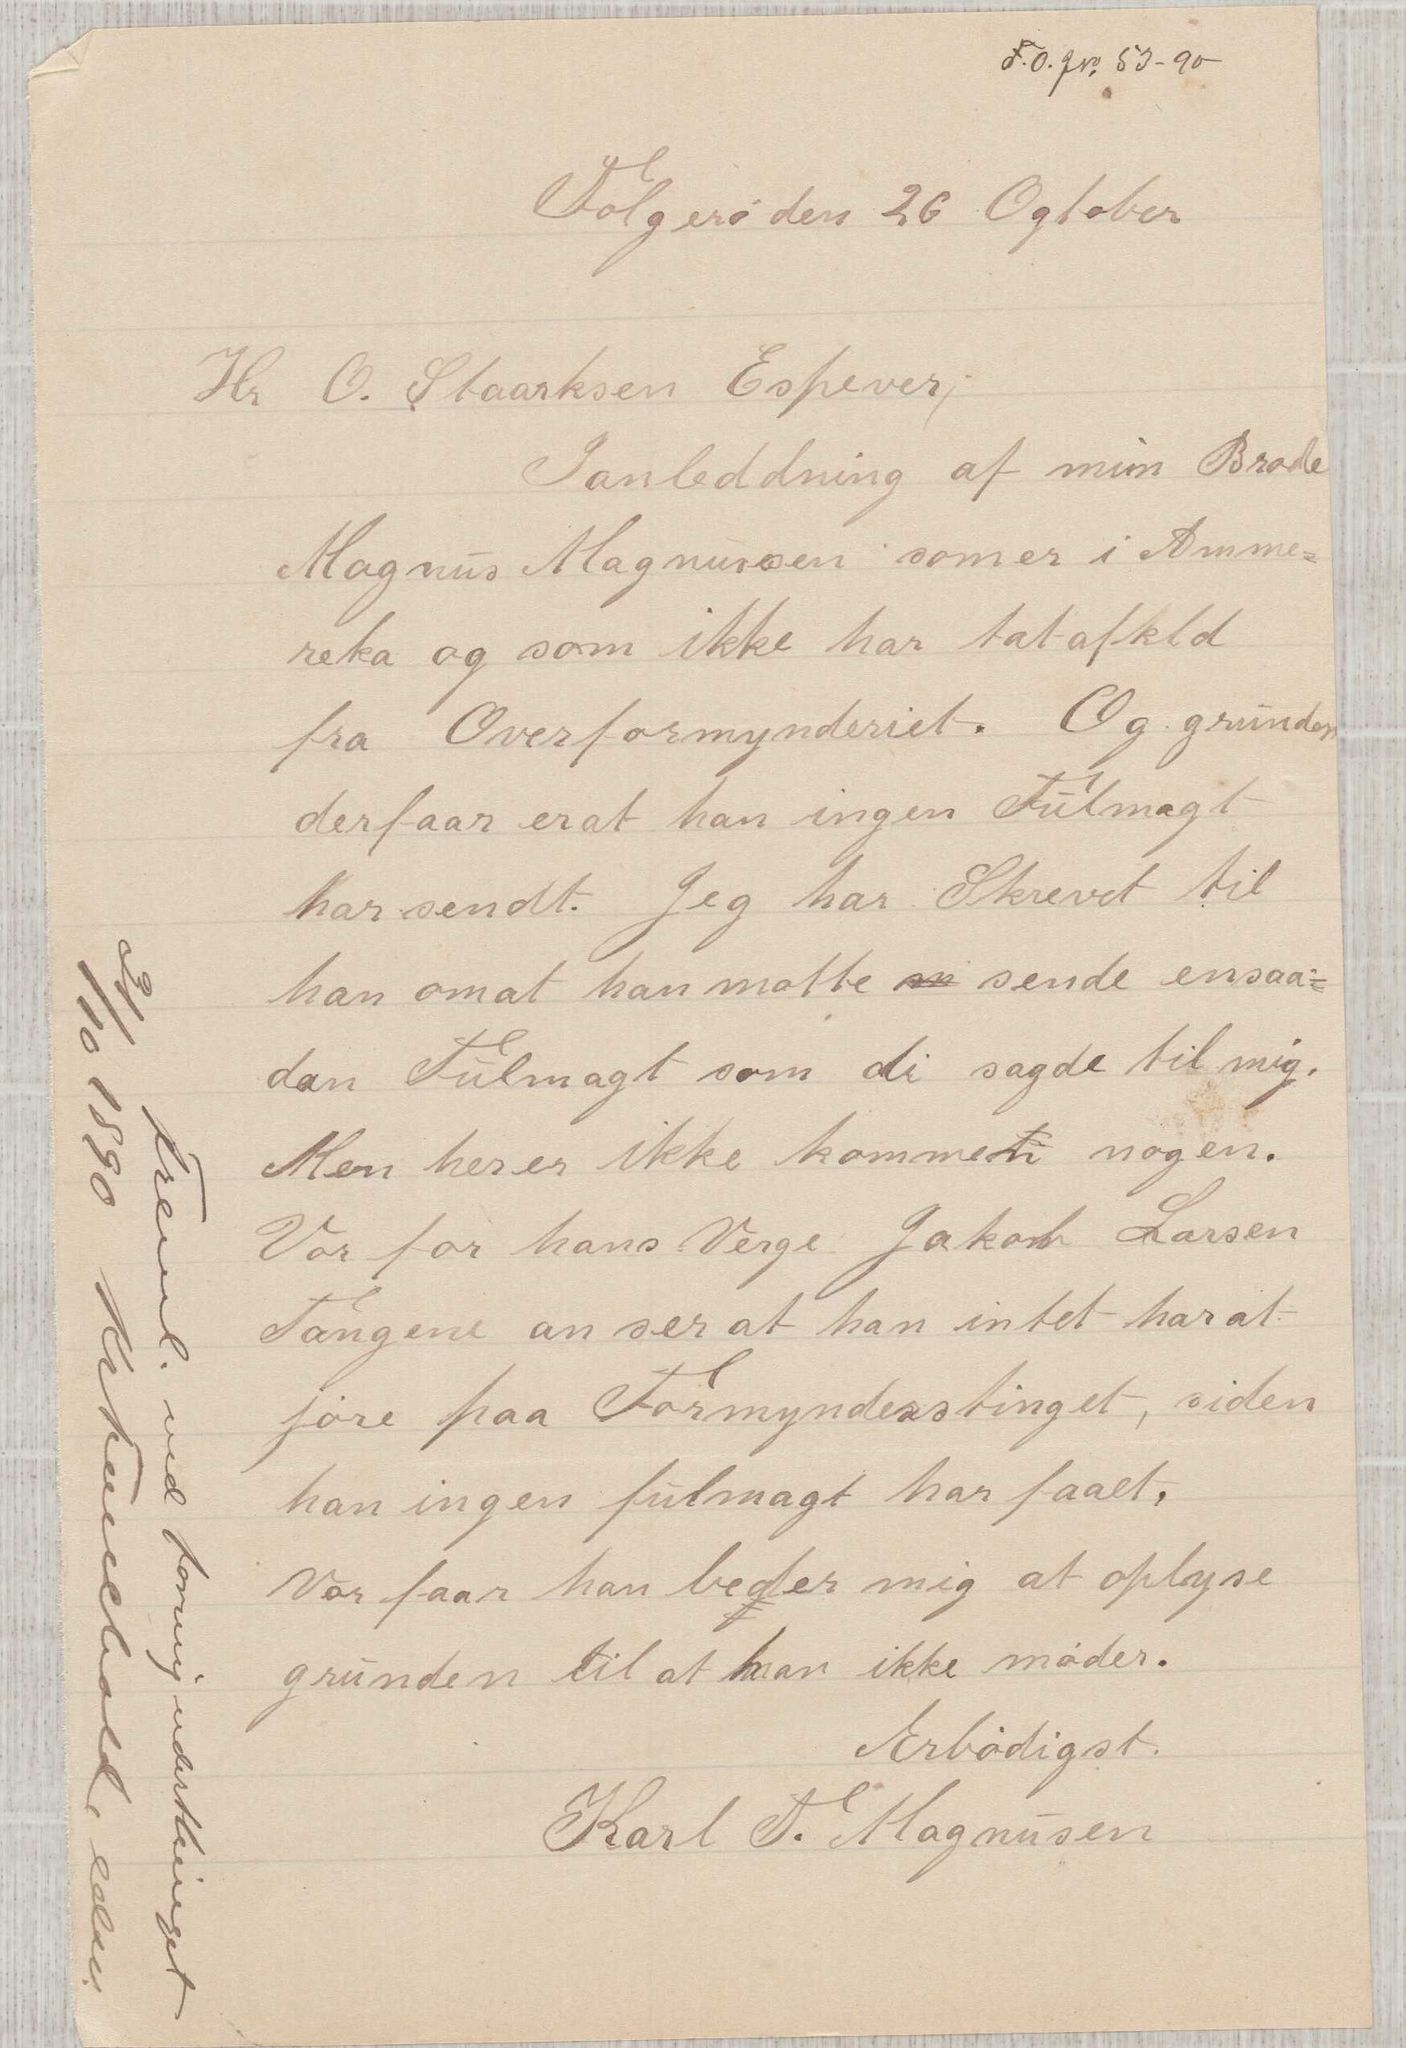 F.O. jrn. 53-90
Folgerø den 26 Ogtober
Hr O. Staarksen Espever,
Ianleddning af min Brode
Magnus Magnussen som er i Amme=
reka og som ikke har tat afkld
fra Overformynderiet. Og grunden
derfaar er at han ingen Fulmagt
har sendt. Jeg har Skrevet til
han om at han motte sende en saa=
dan Fulmagt som di sagde til mig.
Men her er ikke kommet nogen.
Vor for hans Verge Jakob Larsen
Tangene an ser at han intet har at
jøre paa Formynderstinget, siden
han ingen fulmagt har faaet.
Vor faar han beder mig at oplyse
grunden til at han ikke møder.
Erbødigst.
Karl T. Magnusen
Freml. ved formynderthinget
31/10 1890